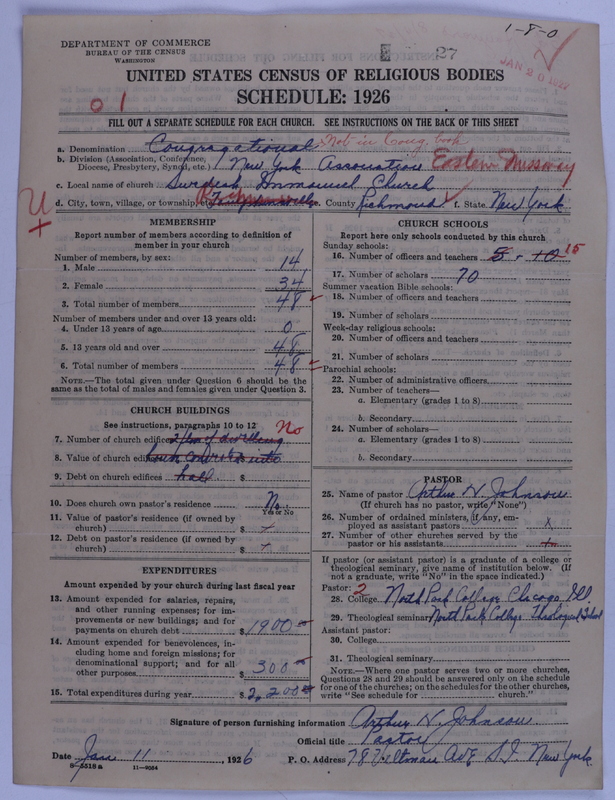 1-8-0
DEPARTMENT OF COMMERCE
BUREAU OF THE CENSUS
WASHINGTON
27
JAN 20 1927
UNITED STATES CENSUS OF RELIGIOUS BODIES
SCHEDULE: 1926
01
FILL OUT A SEPARATE SCHEDULE FOR EACH CHURCH. SEE INSTRUCTIONS ON THE BACK OF THIS SHEET
a. Denomination Congregational Not in Cong. book
b. Division (Association, Conference, Diocese, Presbytery, Synod, etc.) New York Association Eastern Missionary
c. Local name of church Swedish Immanuel Church
d. City, town, village, or township County Richmond f. State New York
MEMBERSHIP
Report number of members according to definition of member in your church
Number of members, by sex:
1. Male 14
2. Female 34
3. Total number of members 48
Number of members under and over 13 years old:
4. Under 13 years of age 0
5. 13 years old and over 48
6. Total number of members 48
NOTE.—The total given under Question 6 should be the same as the total of males and females given under Question 3.
CHURCH BUILDINGS
See instructions, paragraphs 10 to 12 No
7. Number of church edifices
8. Value of church edifices
9. Debt on church edifices hall $
10. Does church own pastor's residence No
Yes or No
11. Value of pastor's residence (if owned by church) $
12. Debt on pastor's residence (if owned by church) $
EXPENDITURES
Amount expended by your church during last fiscal year
13. Amount expended for salaries, repairs, and other running expenses; for improvements or new buildings; and for payments on church debt $ 1900 00
14. Amount expended for benevolences, including home and foreign missions; for denominational support; and for all other purposes $ 300 00
15. Total expenditures during year $ 2,200 00
CHURCH SCHOOLS
Report here only schools conducted by this church
Sunday schools:
16. Number of officers and teachers 5 - 10 15
17. Number of scholars 70
Summer vacation Bible schools:
18. Number of officers and teachers
19. Number of scholars
Week-day religious schools:
20. Number of officers and teachers
21. Number of scholars
Parochial schools:
22. Number of administrative officers
23. Number of teachers—
a. Elementary (grades 1 to 8)
b. Secondary
24. Number of scholars—
a. Elementary (grades 1 to 8)
b. Secondary
PASTOR
25. Name of pastor Arthur V. Johnson
(If church has no pastor, write "None")
26. Number of ordained ministers, if any, employed as assistant pastors x
27. Number of other churches served by the pastor or his assistants
If pastor (or assistant pastor) is a graduate of a college or theological seminary, give name of institution below. (If not a graduate, write "No" in the space indicated.)
Pastor: 2
28. College North Park College Chicago Ill.
29. Theological seminary North Park College Theological School
Assistant pastor:
30. College
31. Theological seminary
NOTE.—Where one pastor serves two or more churches, Questions 28 and 29 should be answered only on the schedule for one of the churches; on the schedules for the other churches, write "See schedule for church."
Signature of person furnishing information Arthur V. Johnson
Official title Pastor
Date Jan 11, 1926 P. O. Address 78 Ave S.I. New York
8-5518a 11-9054